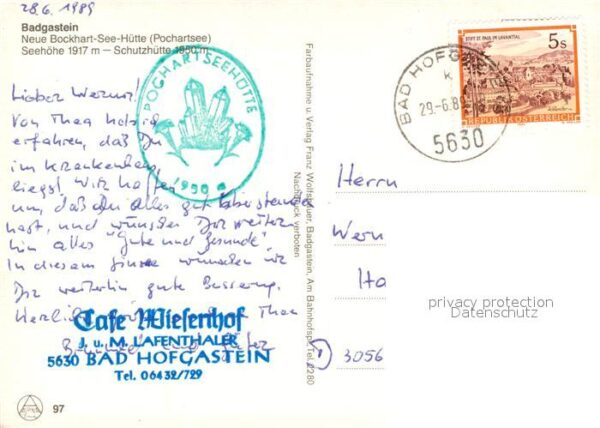 28.6. 1989
Badgastein
Neue Bockhart-See-Hütte (Pochartsee)
Seehöhe 1917 m — Schutzhütte 1950 m
Lieber Werner!
Von Thea hab ich
erfahren, daß Du
im Krankenhaus
liegst. Wir hoffen
nun, daß Du alles gut überstanden
hast, und wünschen Dir weiter-
hin alles "Gute und Gesunde".
In diesem Sinne wünschen wir
Dir weiterhin gute Besserung.
Herzliche Thea
POCHARTSEEHÜTTE
1950 m
Cafe Wiesenhof
J. u. M. LAFENTHALER
5630 BAD HOFGASTEIN
Tel. 06432/729
97
Farbaufnahme u. Verlag Franz Wolfsgruber, Badgastein, Am Bahnhofspl. Tel. 2280
Nachdruck verboten
BAD HOFG
k
29.-6.89
5630
STIFT ST. PAUL IM LAVANTTAL
5s
REPUBLIK ÖSTERREICH
Herrn
Wern
Ha
D 3056
privacy protection
Datenschutz